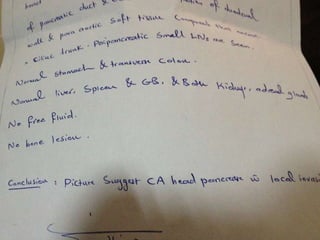 of pancreatic duct & of duodenal
wall & para aortic soft tissue
& celiac trunk. Peripancreatic small LNs are seen.
Normal stomach & transverse colon.
Normal liver, Spleen & GB. & Both Kidneys, adrenal glands
No free fluid.
No bone lesion.
Conclusion : Picture Suggest CA head pancrease w local invasi